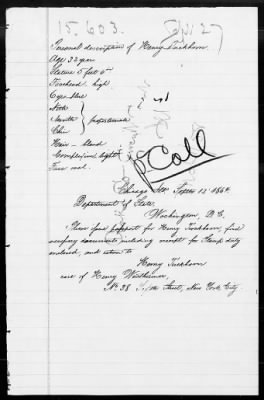 15,603.
Personal description of Henry Turkhorn
Age 33 years
Stature 5 feet 6"
Forehead high
Eyes blue
Nose
Mouth } proportionate
Chin
Hair – blond
Complexion light
Face oval.
Call
Chicago Ills Septbr 12' 1864
Department of State,
Washington, D.C.
Please find passport for Henry Turkhorn, find
necessary documents including receipt for Stamp duty
enclosed, and return to
Henry Turkhorn
care of Henry Waldheimer
No 38 Street, New York City.